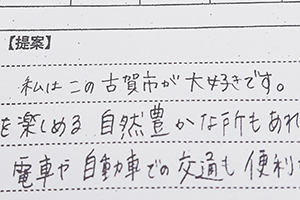 【提案】
私はこの古賀市が大好きです。
を楽しめる自然豊かな所もあれ
電車や自動車での交通も便利